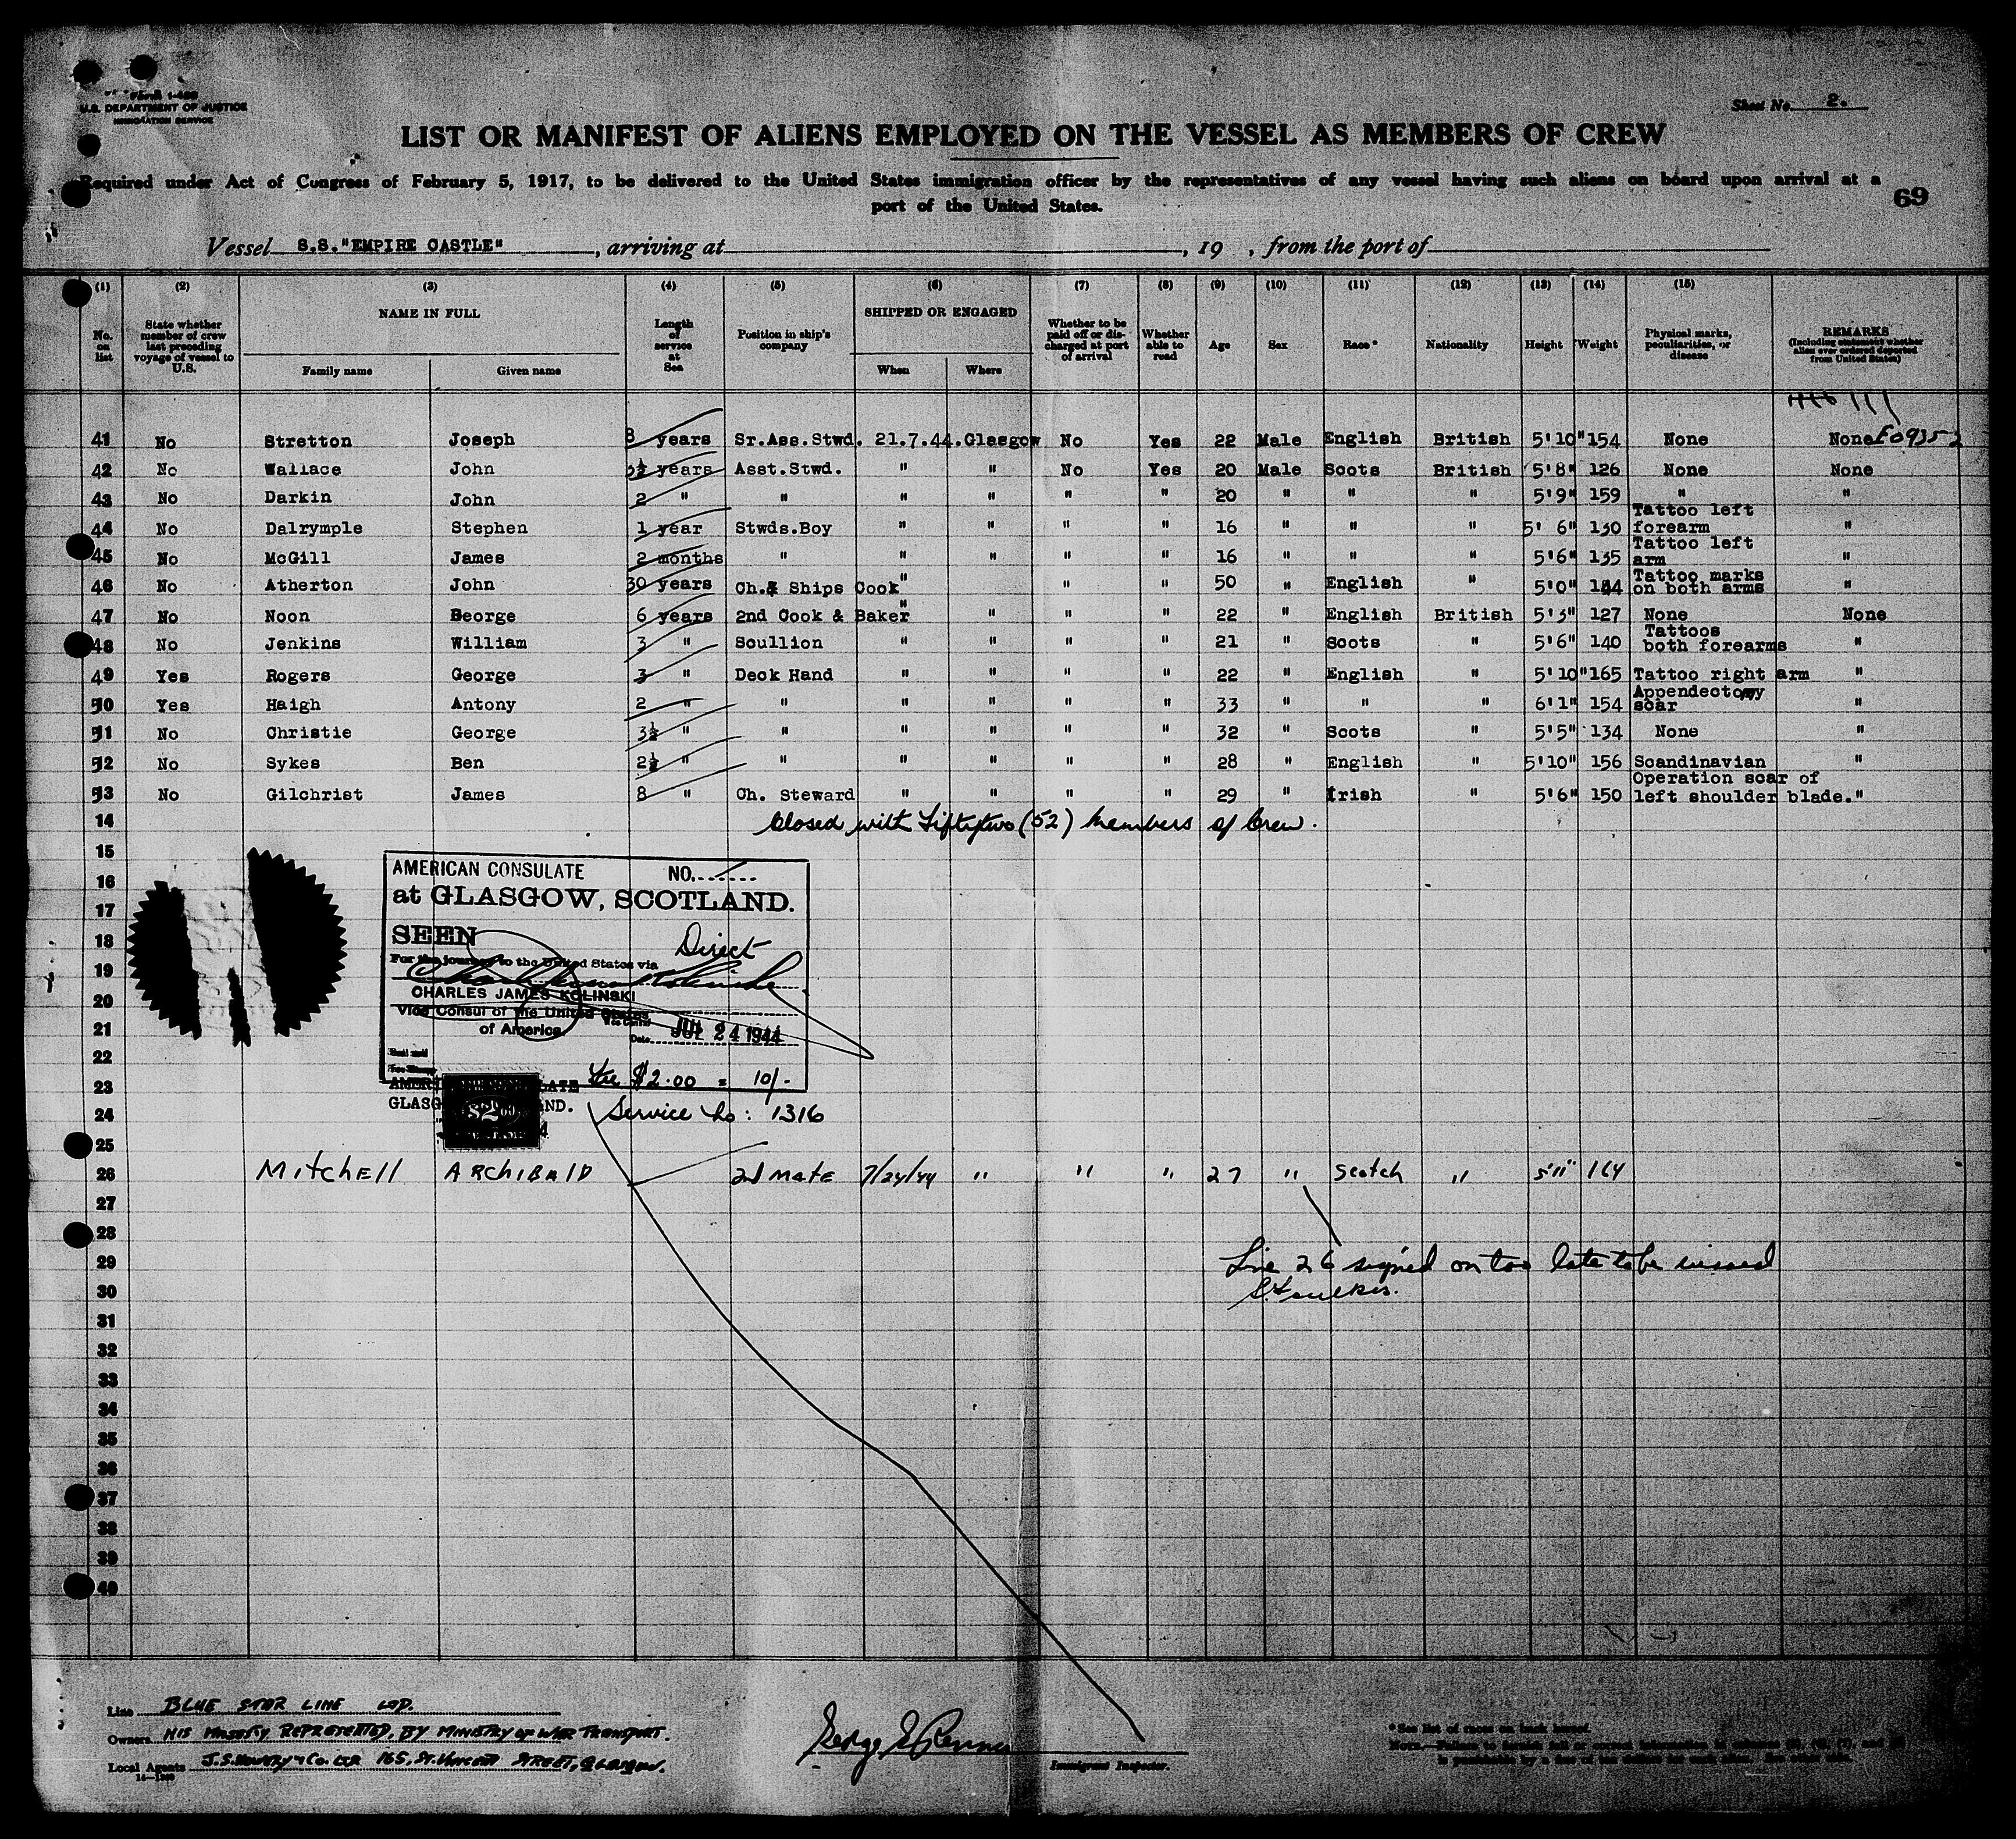 Form I-480
U.S. DEPARTMENT OF JUSTICE
IMMIGRATION SERVICE
Sheet No. 2.
LIST OR MANIFEST OF ALIENS EMPLOYED ON THE VESSEL AS MEMBERS OF CREW
Required under Act of Congress of February 5, 1917, to be delivered to the United States immigration officer by the representatives of any vessel having such aliens on board upon arrival at a
port of the United States.
69
Vessel S.S."EMPIRE CASTLE" , arriving at , 19 , from the port of
(1) (2) (3) (4) (5) (6) (7) (8) (9) (10) (11) (12) (13) (14) (15)
No. on list State whether member of crew last preceding voyage of vessel to U.S. NAME IN FULL Family name Given name Length of service at Sea Position in ship's company SHIPPED OR ENGAGED When Where Whether to be paid off or discharged at port of arrival Whether able to read Age Sex Race* Nationality Height Weight Physical marks, peculiarities, or disease REMARKS (Including statement whether alien ever ordered deported from United States)
41 No Stretton Joseph 8 years Sr.Ass.Stwd. 21.7.44.Glasgow No Yes 22 Male English British 5'10" 154 None None
42 No Wallace John 3½ years Asst.Stwd. " " No Yes 20 Male Scots British 5'8" 126 None None
43 No Darkin John 2 " " " " " " 20 " " " 5'9" 159 " "
44 No Dalrymple Stephen 1 year Stwds.Boy " " " " 16 " " " 5' 6" 130 Tattoo left forearm "
45 No McGill James 2 months " " " " " 16 " " " 5'6" 135 Tattoo left arm "
46 No Atherton John 30 years Ch.& Ships Cook " " " 50 " English " 5'0" 144 Tattoo marks on both arms "
47 No Noon George 6 years 2nd Cook & Baker " " " " 22 " English British 5'3" 127 None None
48 No Jenkins William 3 " Scullion " " " " 21 " Scots " 5'6" 140 Tattoos both forearms "
49 Yes Rogers George 3 " Deck Hand " " " " 22 " English " 5'10" 165 Tattoo right arm "
50 Yes Haigh Antony 2 " " " " " " 33 " " " 6'1" 154 Appendectomy scar "
51 No Christie George 3½ " " " " " " 32 " Scots " 5'5" 134 None "
52 No Sykes Ben 2½ " " " " " " 28 " English " 5'10" 156 Scandinavian "
53 No Gilchrist James 8 " Ch. Steward " " " " 29 " Irish " 5'6" 150 Operation scar of left shoulder blade."
14 Closed with Fiftytwo (52) Members of Crew.
15
16
17
18
19
20
21
22
23
24
25
AMERICAN CONSULATE NO.
at GLASGOW, SCOTLAND.
SEEN Direct
For the journey to the United States via
CHARLES JAMES KOLINSKI
Vice Consul of the United States
of America.
Date JUL 24 1944
Fee $2.00 = 10/-
Service No: 1316
26 Mitchell ARCHIBALD 2nd MATE 7/24/44 " " " 27 " Scotch " 5'11" 164
27
28
29 Line 26 signed on too late to be visaed
30
31
32
33
34
35
36
37
38
39
40
Line BLUE STAR LINE LTD.
Owners HIS MAJESTY REPRESENTED, BY MINISTRY OF WAR TRANSPORT.
Local Agents 165, ST. VINCENT STREET, GLASGOW.
Immigrant Inspector.
*See list of races on back hereof.